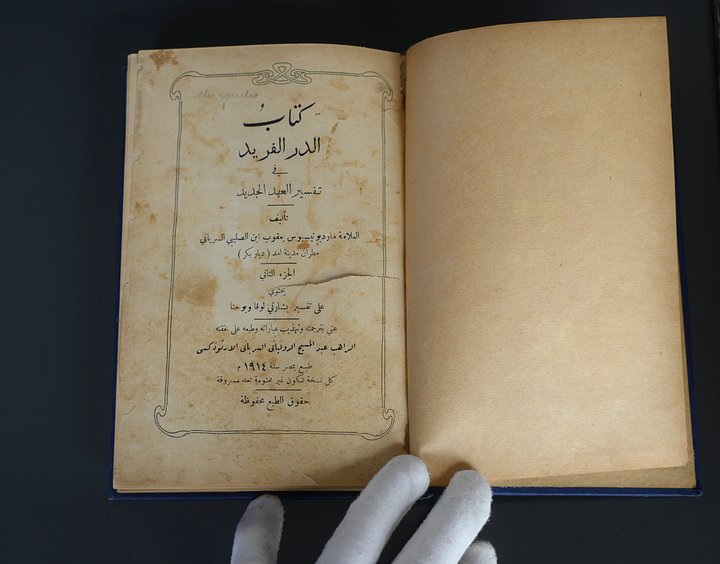 كتابُ
الدر الفريد
في
تفسير العهد الجديد
تأليف
العلامة مار ديونيسيوس يعقوب ابن الصليبي السرياني
مطران مدينة امد ( ديار بكر )
الجزء الثاني
يحتوي
على تفسير بشارتي لوقا ويوحنا
عني بترجمته وتهذيب عباراته وطبعه على نفقته
الراهب عبد المسيح الدولباني السرياني الارثوذكسي
طبع بمصر سنة ١٩١٤ م
كل نسخة تكون غير مختومة تعد مسروقة
حقوق الطبع محفوظة